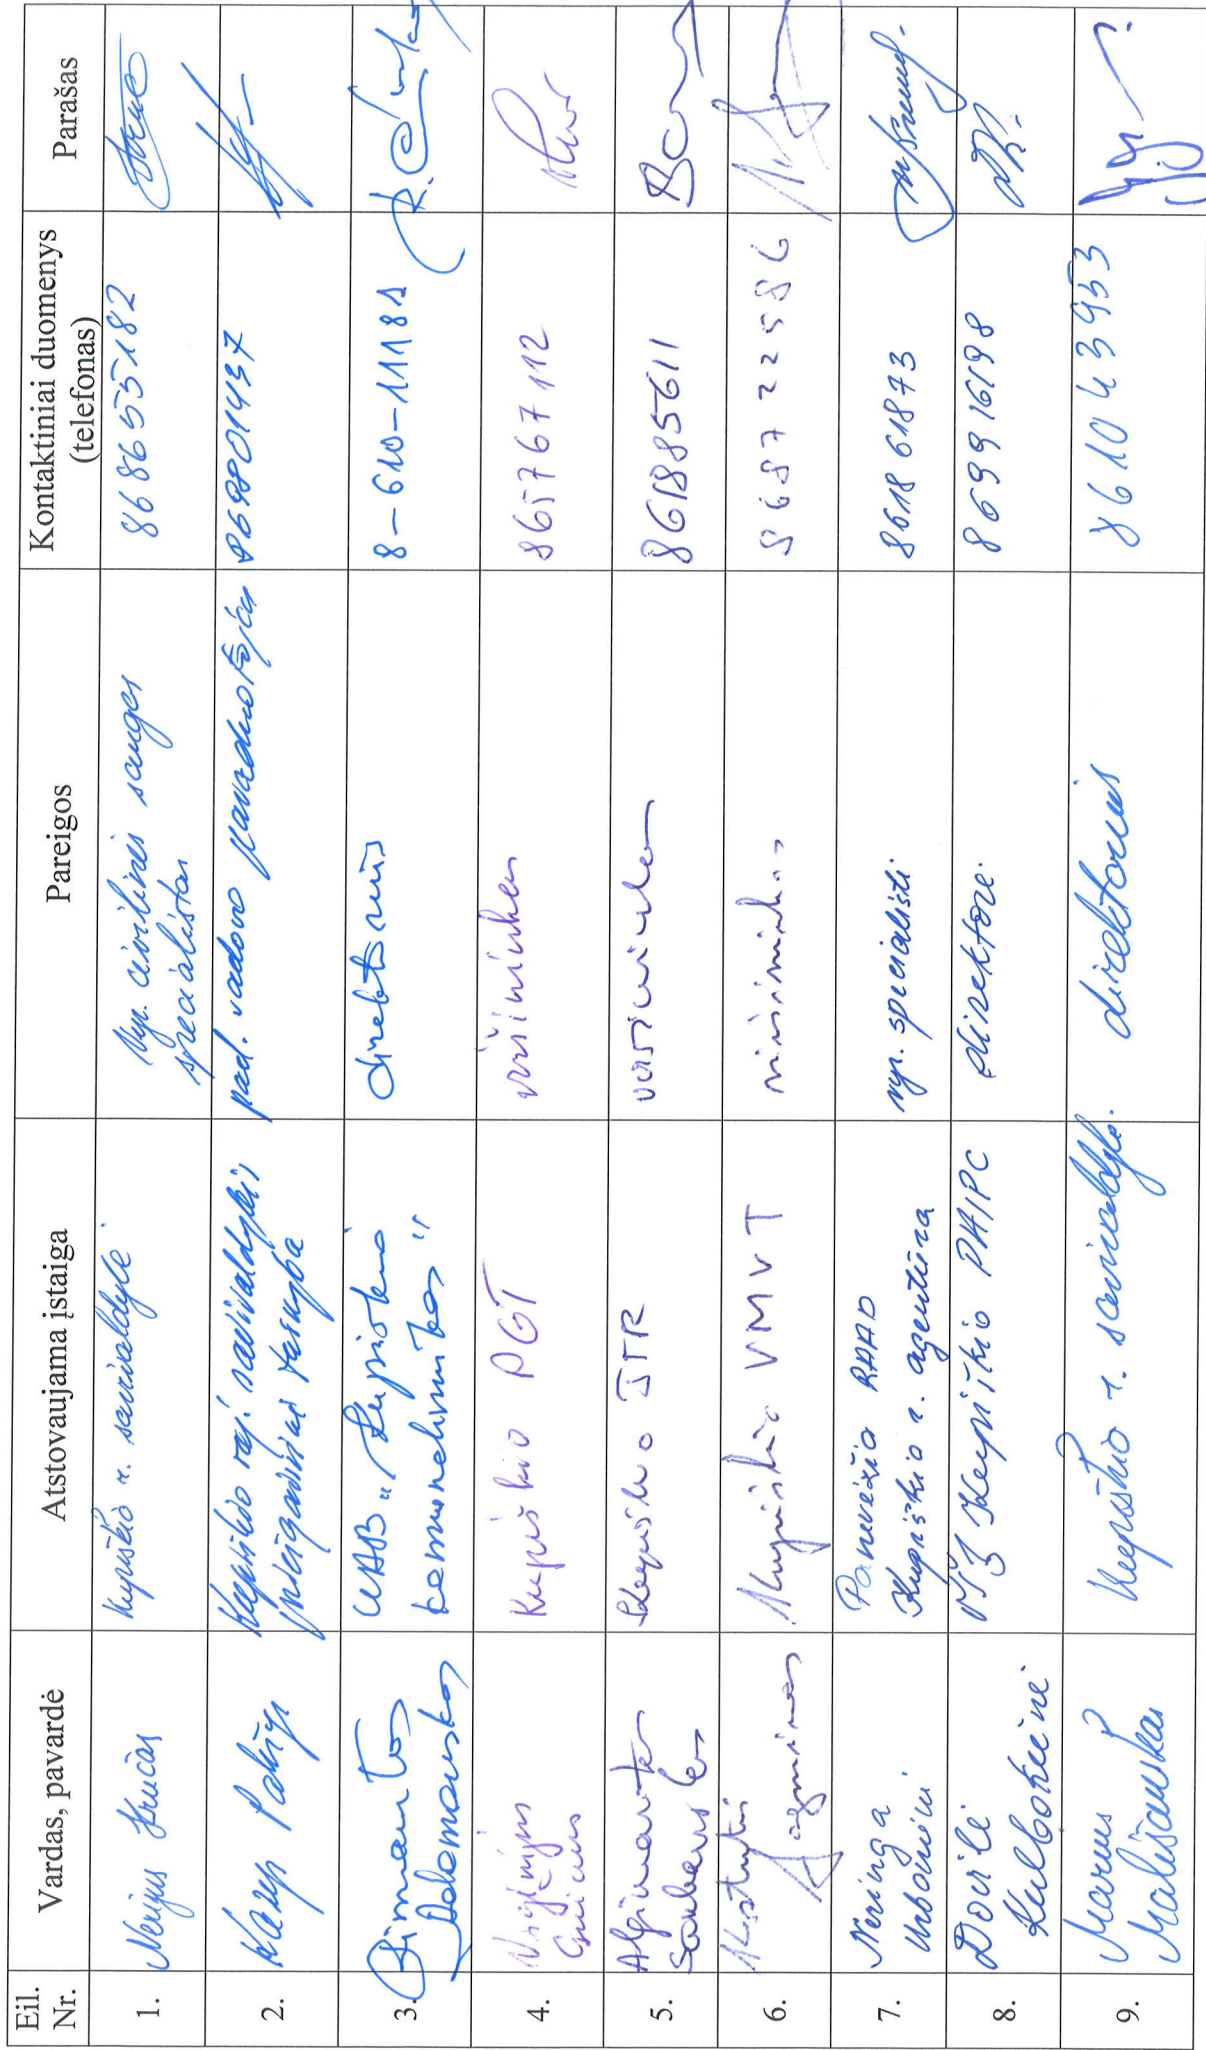 Eil.
Nr.
Vardas, pavardė
Atstovaujama įstaiga
Pareigos
Kontaktiniai duomenys
(telefonas)
Parašas
1.
Nerijus Kručas
Kupiškio r. savivaldybė
Vyr. civilinės saugos
specialistas
868655182
2.
savivaldybės
priešgaisrinė tarnyba
pad. vadovo pavaduotojas
869801437
3.
Rimantas
UAB „Kupiškio
komunalininkas"
direktorius
8-610-11181
4.
Virginijus
Kupiškio PGT
viršininkas
865767112
5.
Algimantas
Kupiškio
viršininkas
861885611
6.
Kęstutis
Kupiškio VMVT
viršininkas
868722586
7.
Neringa
Urbonienė
Panevėžio RAAD
Kupiškio r. agentūra
vyr. specialistė
861861873
8.
Dovilė
Kulbokienė
VŠĮ Kupiškio PAIPC
direktorė
869916198
9.
Mališauskas
Kupiškio r. savivaldyb.
direktorius
861043953